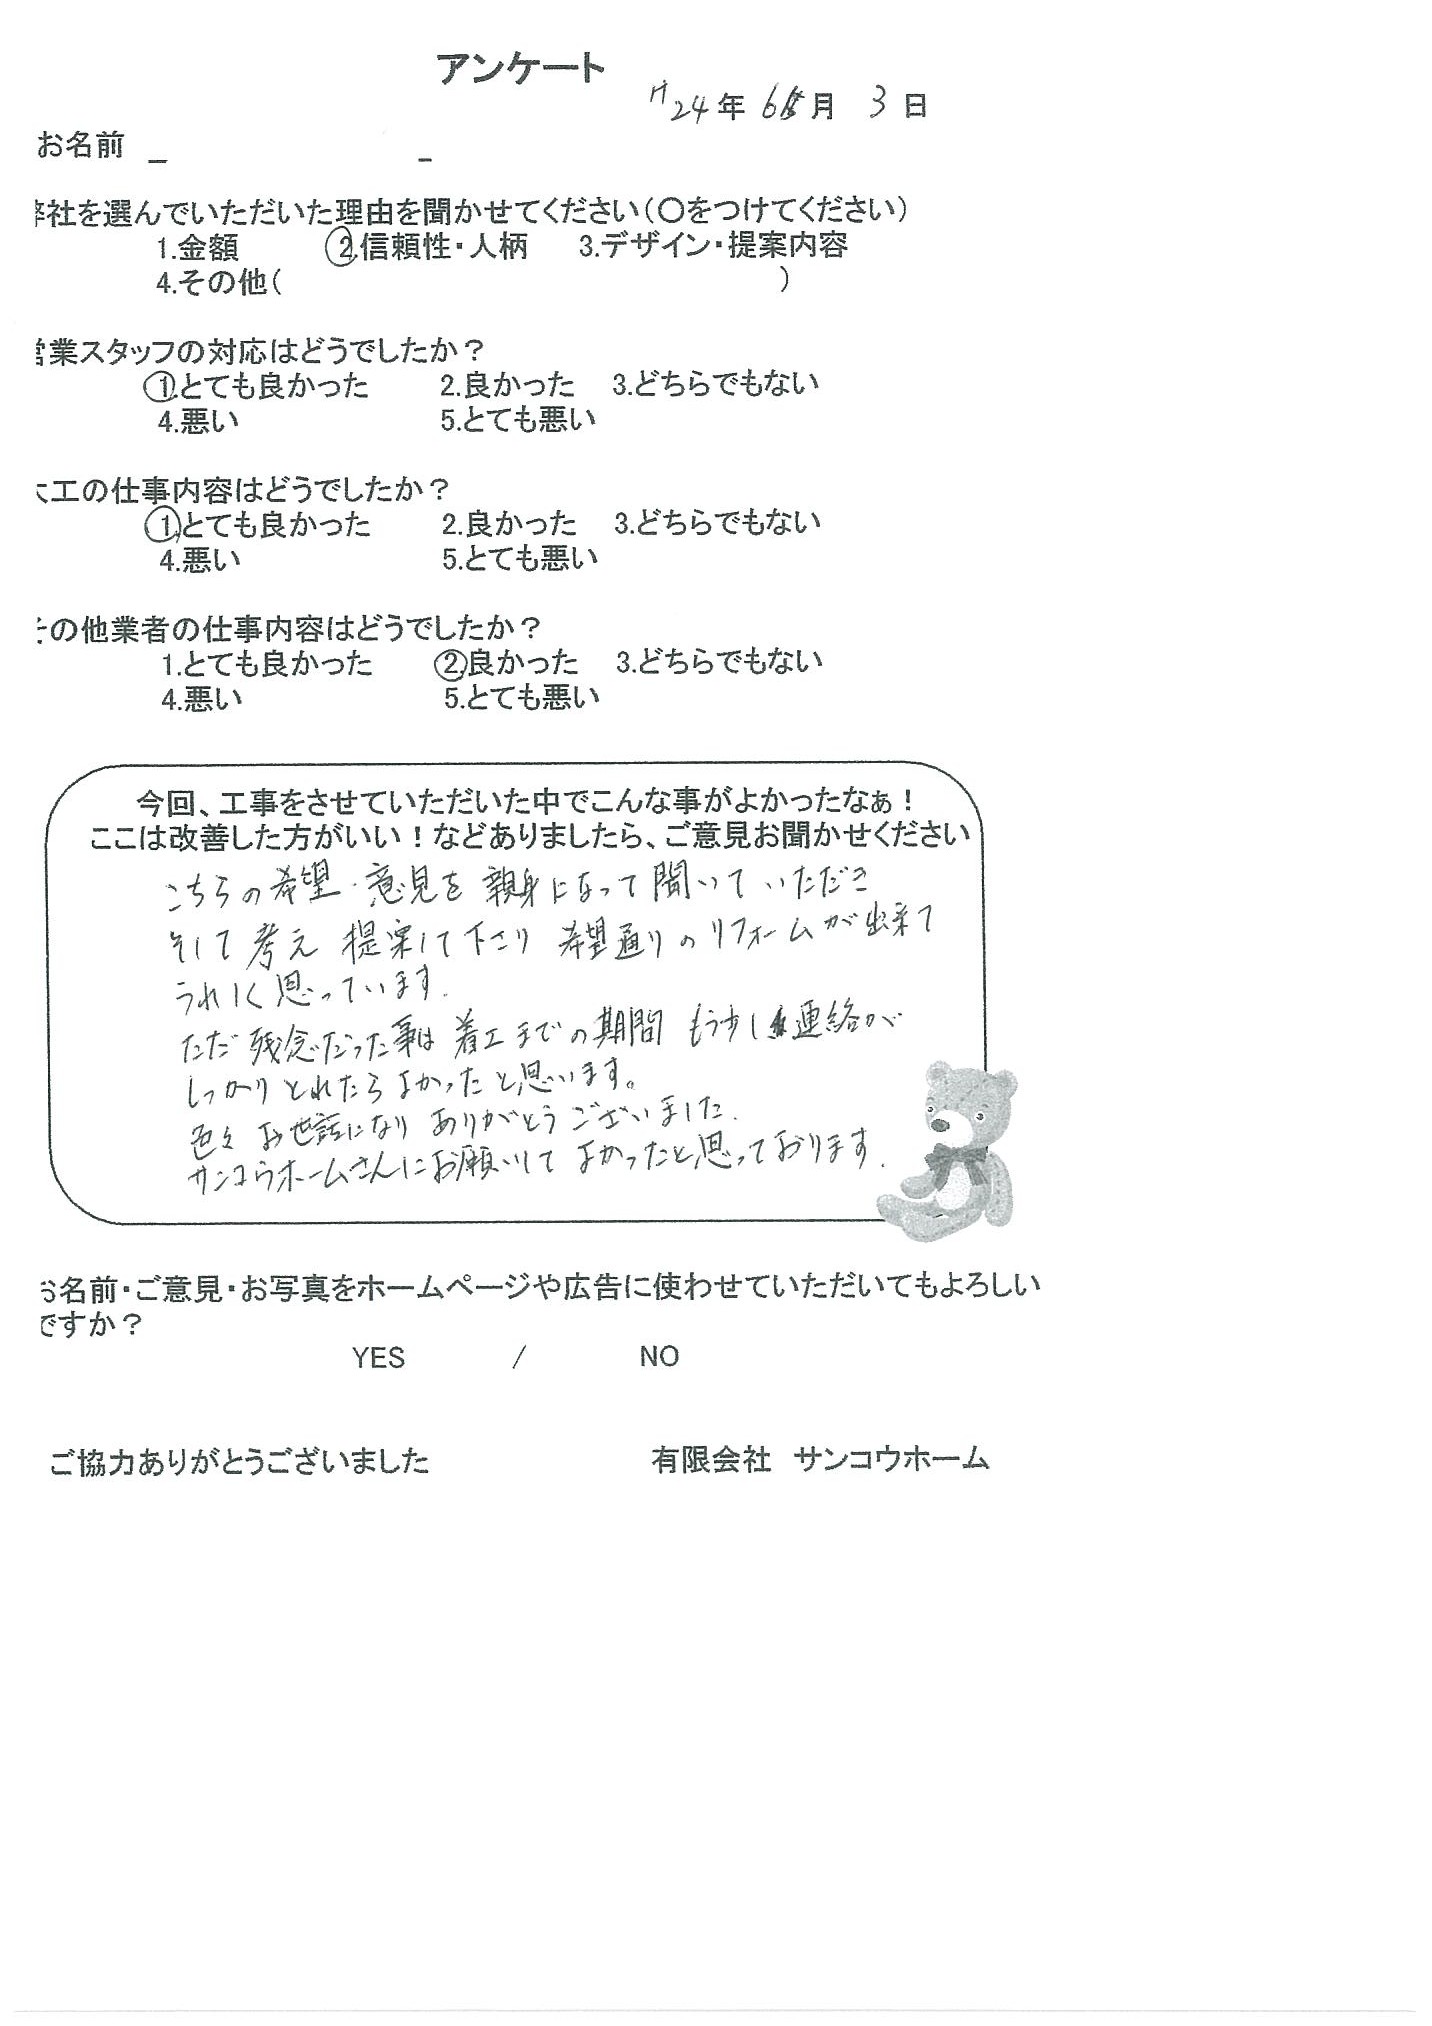 アンケート
H24年 6月 3日
お名前
弊社を選んでいただいた理由を聞かせてください(○をつけてください)
1.金額 2.信頼性・人柄 3.デザイン・提案内容
4.その他( )
営業スタッフの対応はどうでしたか?
1.とても良かった 2.良かった 3.どちらでもない
4.悪い 5.とても悪い
大工の仕事内容はどうでしたか?
1.とても良かった 2.良かった 3.どちらでもない
4.悪い 5.とても悪い
その他業者の仕事内容はどうでしたか?
1.とても良かった 2.良かった 3.どちらでもない
4.悪い 5.とても悪い
今回、工事をさせていただいた中でこんな事がよかったなぁ!
ここは改善した方がいい!などありましたら、ご意見お聞かせください
こちらの希望・意見を親身になって聞いていただき
そして考え 提案して下さり 希望通りのリフォームが出来て
うれしく思っています.
ただ残念だった事は着工までの期間 もう少し連絡が
しっかりとれたらよかったと思います。
色々お世話になり ありがとうございました.
サンコウホームさんにお願いして よかったと思っております.
お名前・ご意見・お写真をホームページや広告に使わせていただいてもよろしい
ですか?
YES / NO
ご協力ありがとうございました 有限会社 サンコウホーム